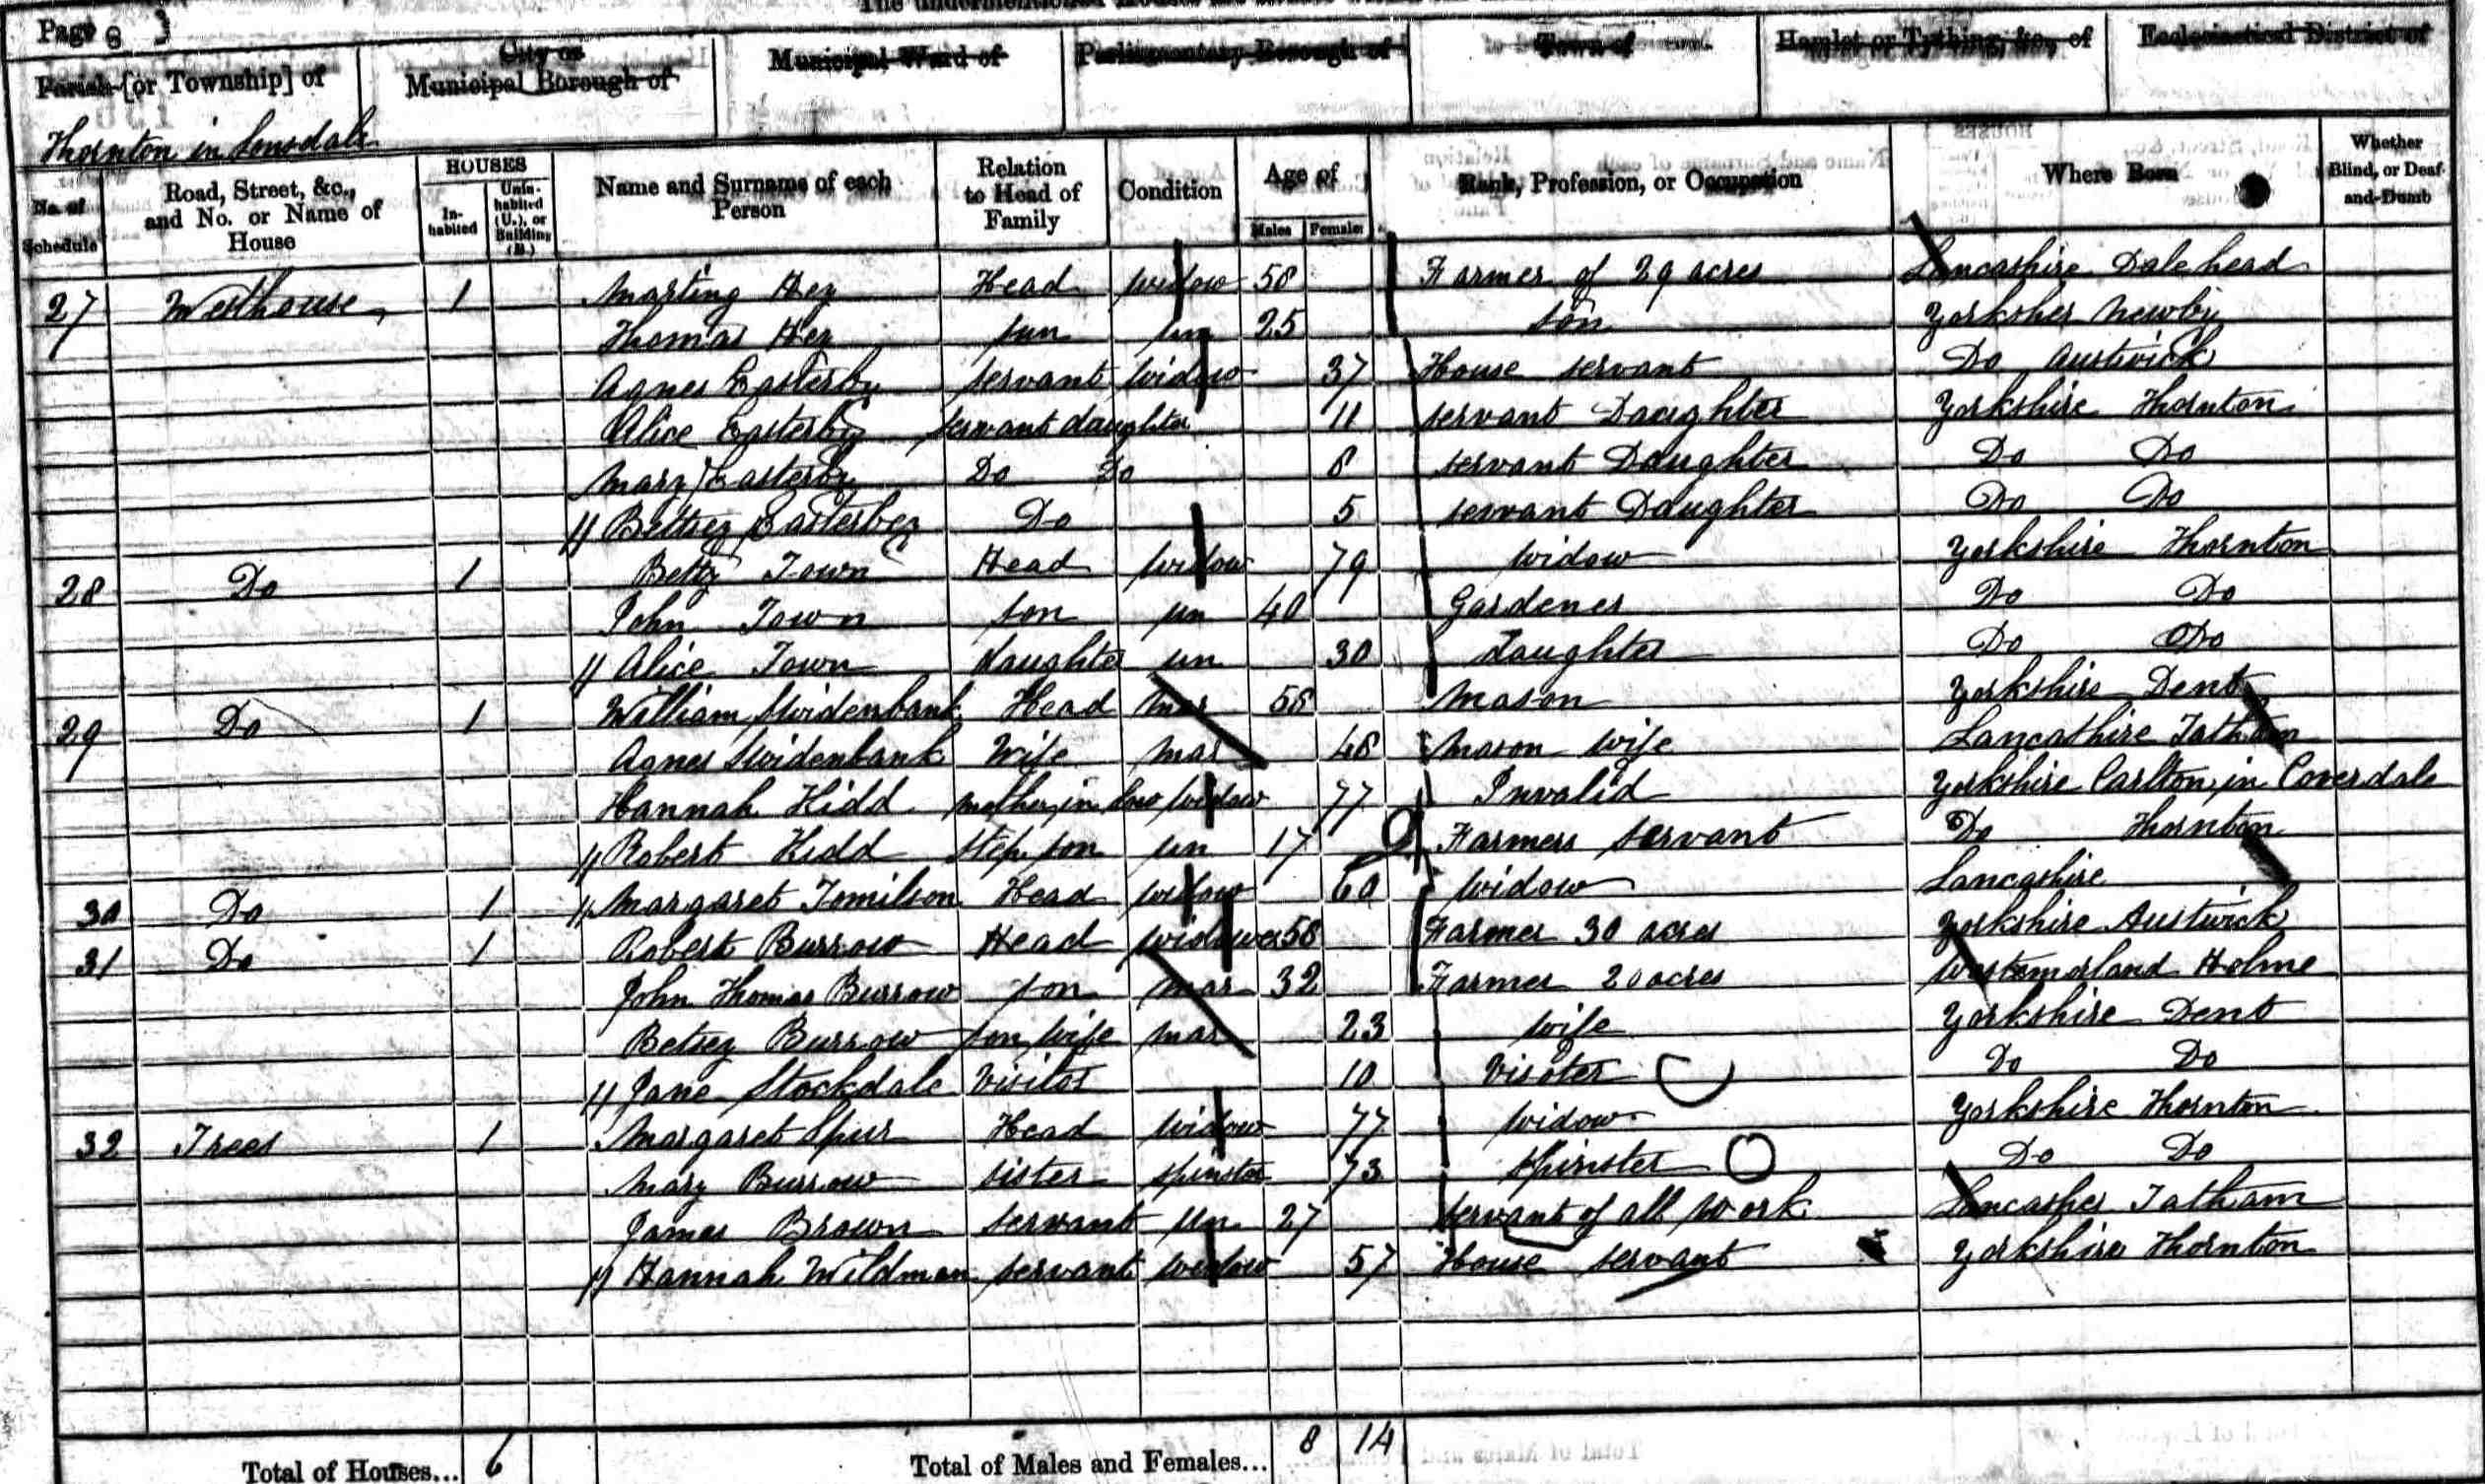 Page 8 3
Parish [or Township] of
City or Municipal Borough of
Municipal Ward of
Parliamentary Borough of
Town of
Hamlet or Tything, &c., of
Ecclesiastical District of
Thornton in Lonsdale
No. of Schedule
Road, Street, &c., and No. or Name of House
HOUSES
In-habited
Unin-habited (U.), or Building (B.)
Name and Surname of each Person
Relation to Head of Family
Condition
Age of
Males
Females
Rank, Profession, or Occupation
Where Born
Whether Blind, or Deaf-and-Dumb
27 Westhouse 1 Marting Hey Head widow 58 Farmer of 29 acres Lancashire Dalehead
Thomas Hey sun un 25 son Yorksher Newby
Agnes Easterby servant widow 37 House servant Do Austwick
Alice Easterby servant daughter 11 servant Daughter Yorkshire Thornton
Mary Easterby Do Do 8 servant Daughter Do Do
// Bettsey Easterbey Do 5 servant Daughter Do Do
28 Do 1 Betty Town Head widow 79 widow Yorkshire Thornton
John Town son un 40 Gardener Do Do
// Alice Town daughter un 30 daughter Do Do
29 Do 1 William Swidenbank Head mar 58 Mason Yorkshire Dent
Agnes Swidenbank Wife mar 48 Mason wife Lancashire Tatham
Hannah Kidd mother in law widow 77 Invalid Yorkshire Carlton in Coverdale
// Robert Kidd step son un 17 Farmers servant Do Thornton
30 Do 1 // Margaret Tomilson Head widow 60 widow Lancashire
31 Do 1 Robert Burrow Head widower 58 Farmer 30 acres Yorkshire Austwick
John Thomas Burrow son mar 32 Farmer 20 acres Westemorland Holme
Betsey Burrow son wife mar 23 wife Yorkshire Dent
// Jane Stockdale Visitor 10 Visoter Do Do
32 Trees 1 Margaret Spur Head widow 77 widow Yorkshire Thornton
Mary Burrow sister spinster 73 spinster Do Do
James Brown servant un 27 servant of all work Lancasher Tatham
// Hannah Wildman servant widow 57 House servant Yorkshire Thornton
Total of Houses... 6 Total of Males and Females... 8 14